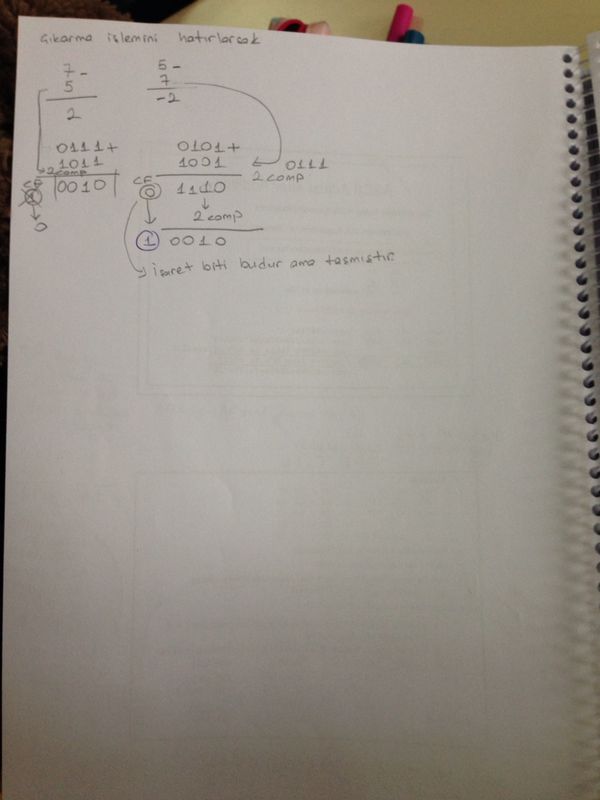 Çıkarma işlemini hatırlarcak
7 -
5
2
5 -
7
-2
0111 +
1011
2 comp
CF 1 0010
0
0101 +
1001 ← 0111
2 comp
CF 0 1110
2 comp
1 0010
işaret biti budur ama taşmıştır.